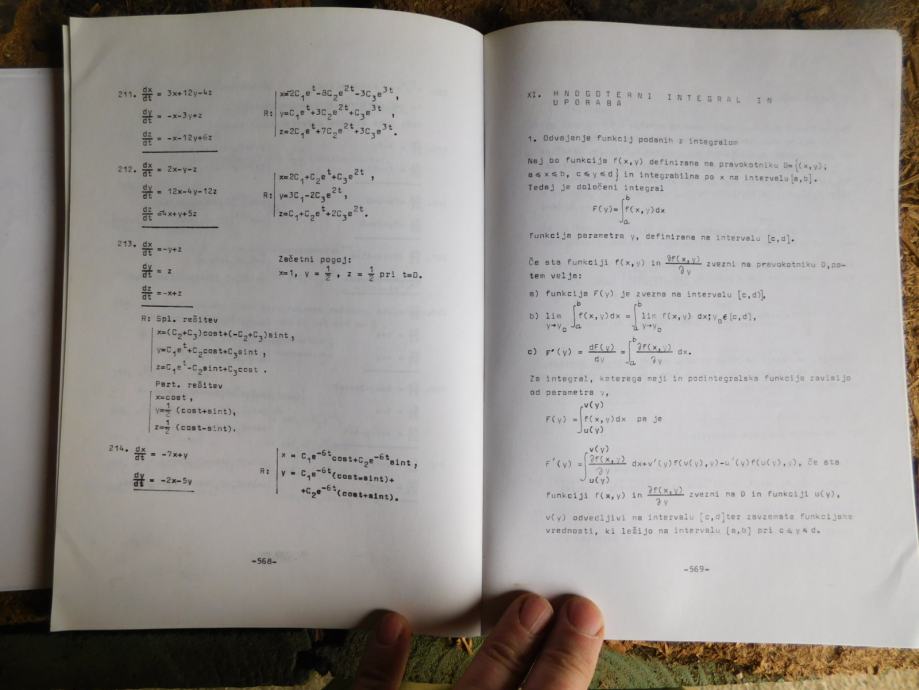 211. dx/dt = 3x+12y-4z
dy/dt = -x-3y+z
dz/dt = -x-12y+6z
R: x=-2C₁e^t-8C₂e^2t-3C₃e^3t,
y=C₁e^t+3C₂e^2t+C₃e^3t,
z=2C₁e^t+7C₂e^2t+3C₃e^3t.
212. dx/dt = 2x-y-z
dy/dt = 12x-4y-12z
dz/dt =-4x+y+5z
R: x=2C₁+C₂e^t+C₃e^2t,
y=3C₁-2C₃e^2t,
z=C₁+C₂e^t+2C₃e^2t.
213. dx/dt =-y+z
dy/dt = z
dz/dt =-x+z
Začetni pogoj:
x=1, y = 1/2, z = 1/2 pri t=0.
R: Spl. rešitev
x=(C₂+C₃)cost+(-C₂+C₃)sint,
y=C₁e^t+C₂cost+C₃sint,
z=C₁e^t-C₂sint+C₃cost.
Part. rešitev
x=cost,
y=1/2 (cost+sint),
z=1/2 (cost-sint).
214. dx/dt = -7x+y
dy/dt = -2x-5y
R: x = C₁e^-6t cost+C₂e^-6t sint,
y = C₁e^-6t(cost-sint)+
+C₂e^-6t(cost+sint).
-568-
XI. MNOGOTERNI INTEGRAL IN
UPORABA
1. Odvajanje funkcij podanih z integralom
Naj bo funkcija f(x,y) definirana na pravokotniku D={(x,y);
a≤x≤b, c≤y≤d} in integrabilna po x na intervalu[a,b].
Tedaj je določeni integral
F(y)=∫_a^b f(x,y)dx
funkcija parametra y, definirana na intervalu [c,d].
Če sta funkciji f(x,y) in ∂f(x,y)/∂y zvezni na pravokotniku D,po-
tem velja:
a) funkcija F(y) je zvezna na intervalu [c,d],
b) lim y→y₀ ∫_a^b f(x,y)dx = ∫_a^b lim y→y₀ f(x,y) dx;y₀∈[c,d],
c) F'(y) = dF(y)/dy = ∫_a^b ∂f(x,y)/∂y dx.
Za integral, katerega meji in podintegralska funkcija zavisijo
od parametra y,
F(y)=∫_u(y)^v(y) f(x,y)dx pa je
F'(y) =∫_u(y)^v(y) ∂f(x,y)/∂y dx+v'(y)f(v(y),y)-u'(y)f(u(y),y), če sta
funkciji f(x,y) in ∂f(x,y)/∂y zvezni na D in funkciji u(y),
v(y) odvedljivi na intervalu [c,d]ter zavzemata funkcijske
vrednosti, ki ležijo na intervalu [a,b] pri c≤y≤d.
-569-